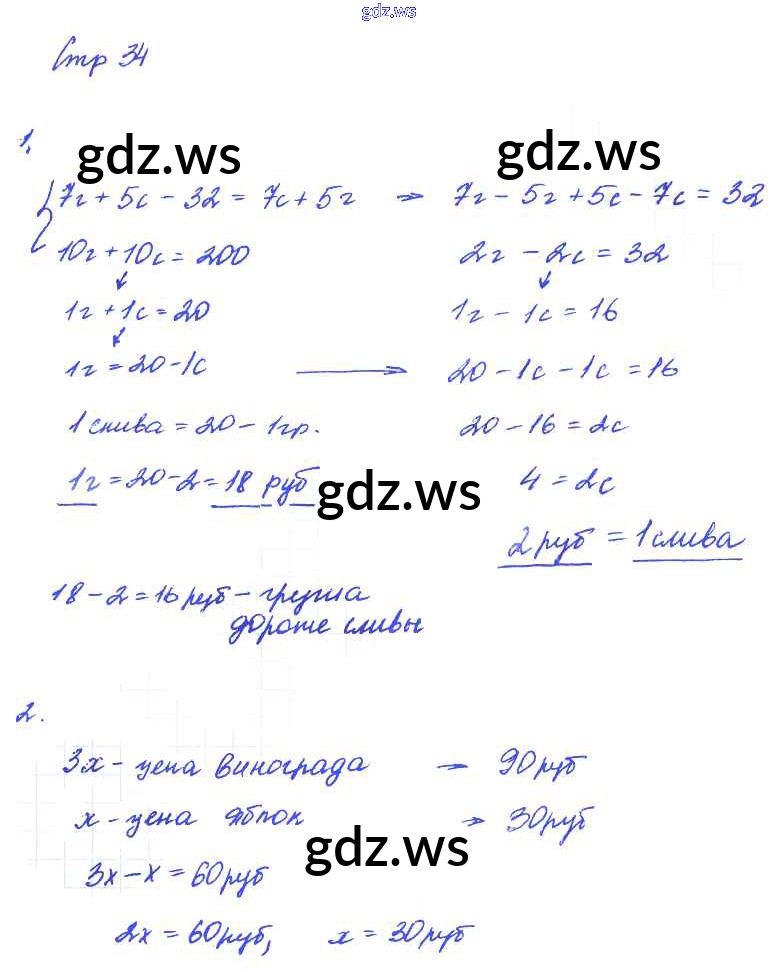 gdz.ws
Стр 34
1.
gdz.ws gdz.ws
7г + 5с - 32 = 7с + 5г → 7г - 5г + 5с - 7с = 32
10г + 10с = 200 2г - 2с = 32
1г + 1с = 20 1г - 1с = 16
1г = 20 - 1с → 20 - 1с - 1с = 16
1 слива = 20 - 1гр. 20 - 16 = 2с
1г = 20 - 2 = 18 руб gdz.ws 4 = 2с
2 руб = 1 слива
18 - 2 = 16 руб - груша
дороже сливы
2.
3х - цена винограда → 90 руб
х - цена яблок → 30 руб
gdz.ws
3х - х = 60 руб
2х = 60 руб, х = 30 руб